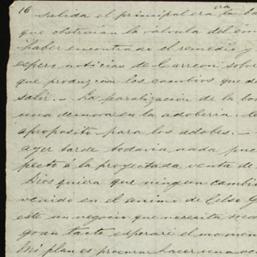 16
salida el principal era la ba
que obstruian la valvula del em
haber encontrado el remedio y
espero noticias de Carreon sobre
que produzcan los cambios que de
salir. — La paralizacion de la bom
una demora en la adoberia
aproposito para los adobes. —
ayer tarde todavia nada pue
pecto á la proyectada venta de
Dios quiera que ningun cambio
venido en el animo de Celso G
este un negocio que necesita
tanto esperaré el momen
Mi plan es procurar hacer una